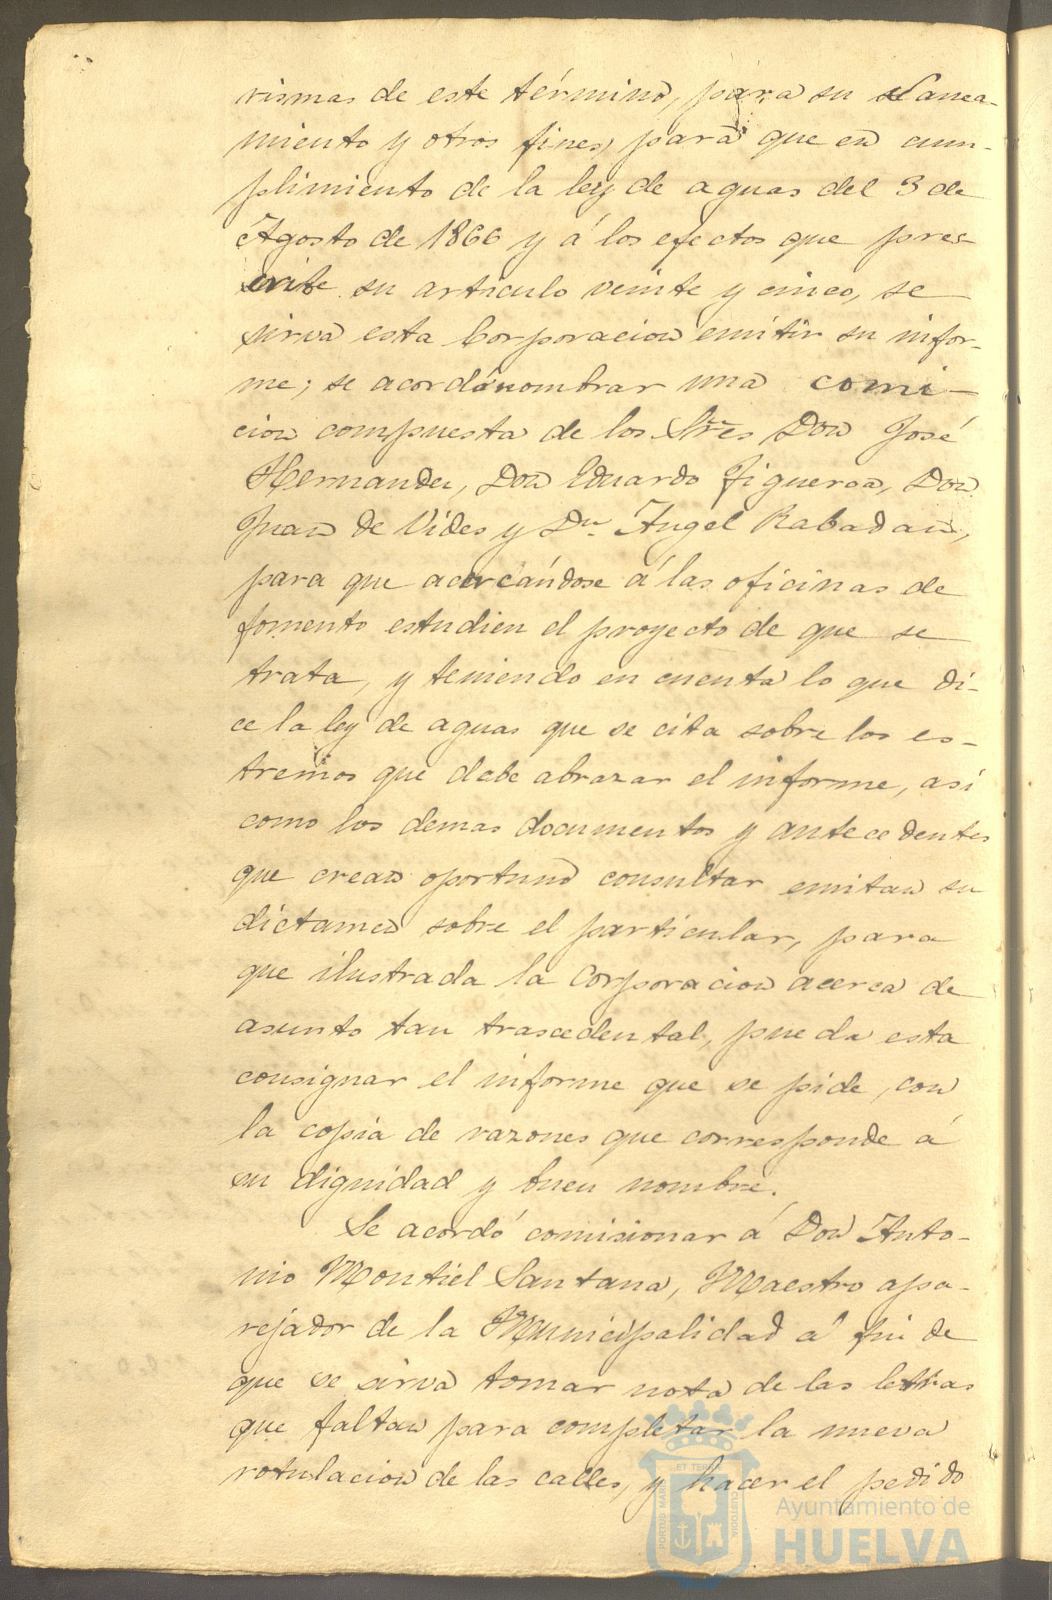 rismas de este término, para su sanea-
miento y otros fines, para que en cum-
plimiento de la ley de aguas del 3 de
Agosto de 1866 y á los efectos que pres-
cribe su articulo veinte y cinco, se
sirva esta Corporacion emitir su infor-
me; se acordó nombrar una comi-
cion compuesta de los Sres Don José
Hernandez, Don Eduardo Figueroa, Don
Juan de Vides y Dn. Ángel Rabadan,
para que acercándose á las oficinas de
fomento estudien el proyecto de que se
trata, y teniendo en cuenta lo que di-
ce la ley de aguas que se cita sobre los es-
tremos que debe abrazar el informe, asi
como los demas documentos y antecedentes
que crean oportuno consultar emitan su
dictamen sobre el particular, para
que ilustrada la Corporacion acerca de
asunto tan trascedental, pueda esta
consignar el informe que se pide, con
la copia de razones que corresponde á
su dignidad y buen nombre.
Se acordó comisionar á Don Anto-
nio Montiel Santana, Maestro apa-
rejador de la Municipalidad á fin de
que se sirva tomar nota de las letras
que faltan para completar la nueva
rotulacion de las calles, y hacer el pedido
PORTUS MARIS ET TERRE CUSTODIA
Ayuntamiento de
HUELVA